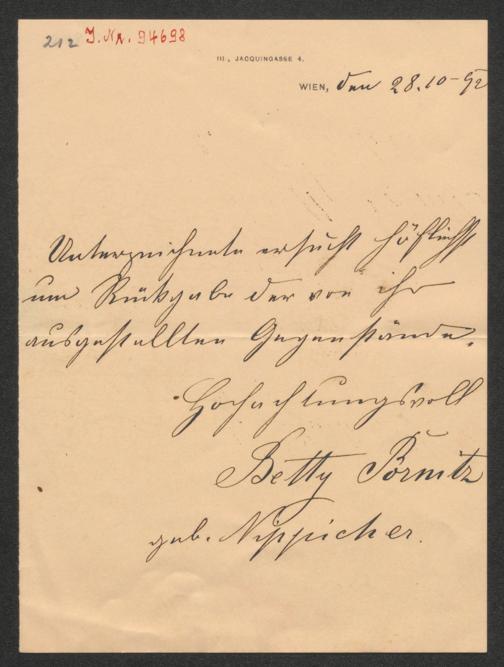 212 J. Nr. 94698
III., JACQUINGASSE 4.
WIEN, den 28.10-92
Unterzeichnete ersucht höflichst
um Rückgabe der von ihr
ausgestellten Gegenstände.
Hochachtungsvoll
Betty
geb.